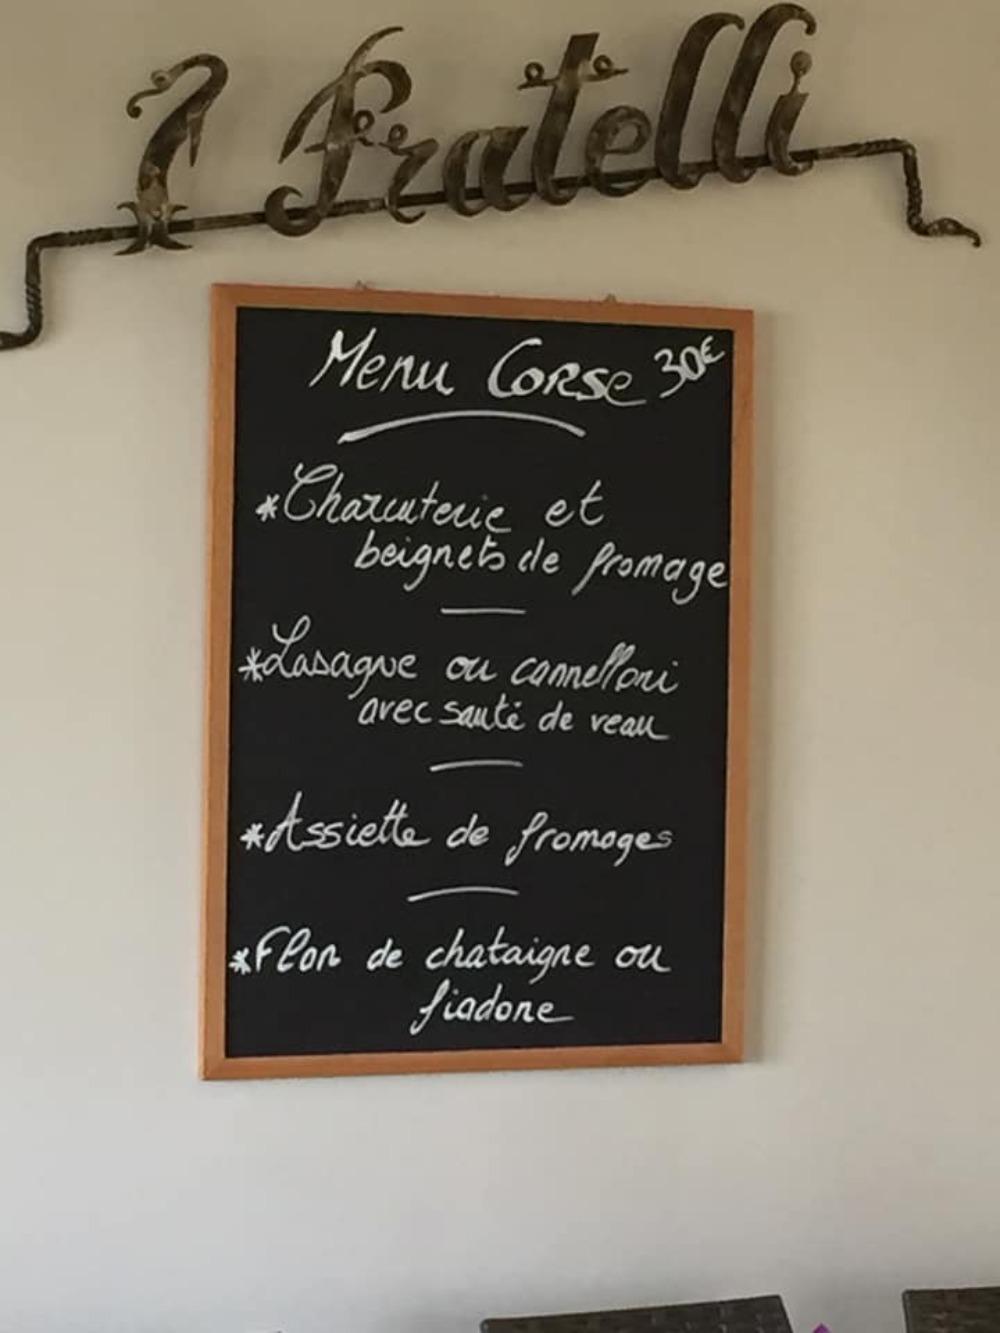 I Fratelli
Menu Corse 30€
*Charcuterie et
beignets de fromage
*Lasagne ou cannelloni
avec sauté de veau
*Assiette de fromages
*Flan de chataigne ou
fiadone